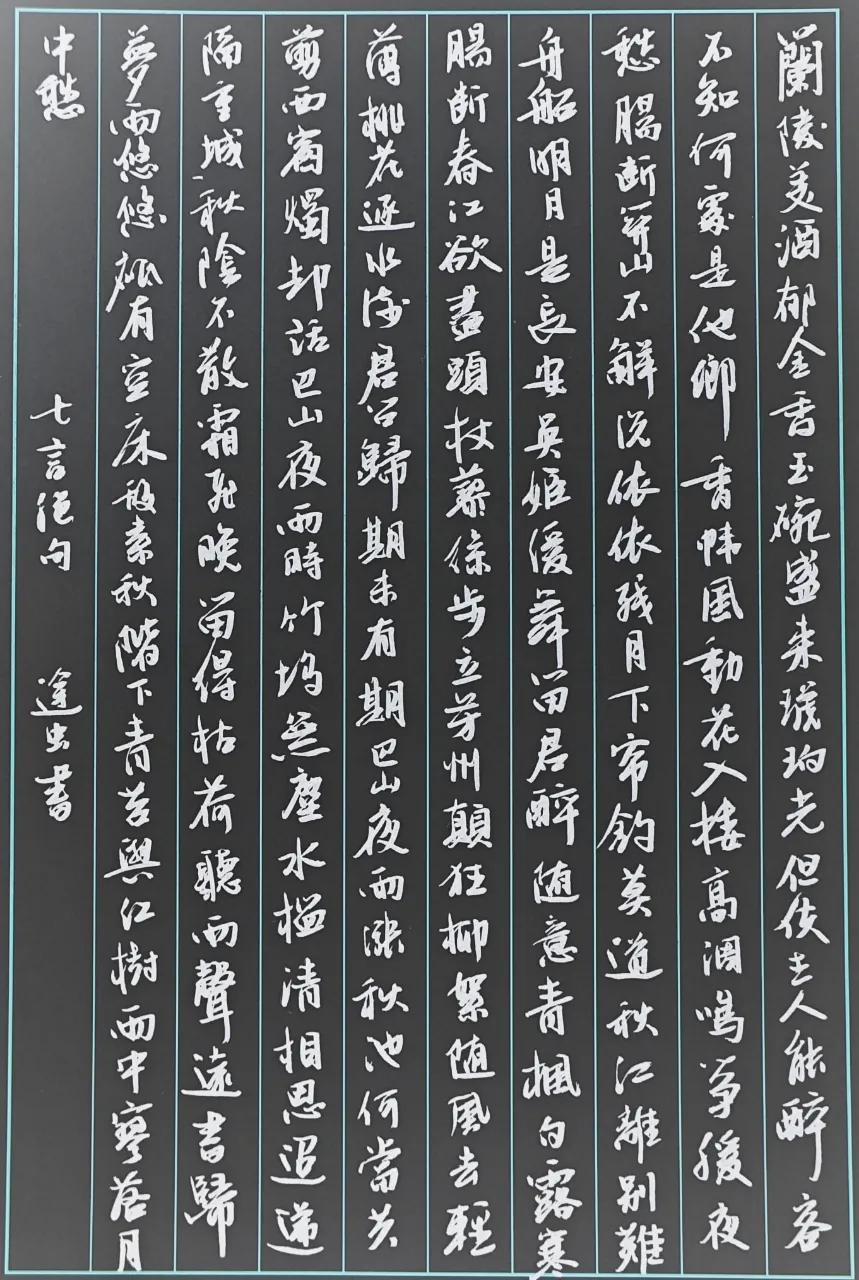 蘭陵美酒郁金香玉碗盛来琥珀光但使主人能醉客
不知何處是他鄉香帏風動花入楼高调鳴筝缓夜
愁腸断関山不解说依依残月下帘钩莫道秋江離别難
舟船明月是長安吴姬缓舞留君醉随意青楓白露寒
腸断春江欲盡頭杖藜徐步立芳州顛狂柳絮随風去輕
薄桃花逐水流君问歸期未有期巴山夜雨涨秋池何當共
剪西窗燭却话巴山夜雨時竹坞無塵水槛清相思迢递
隔重城秋陰不散霜飛晚留得枯荷聽雨聲遠書歸
夢两悠悠祗有空床敌素秋階下青苔與红樹雨中寥落月
中愁 七言绝句 書